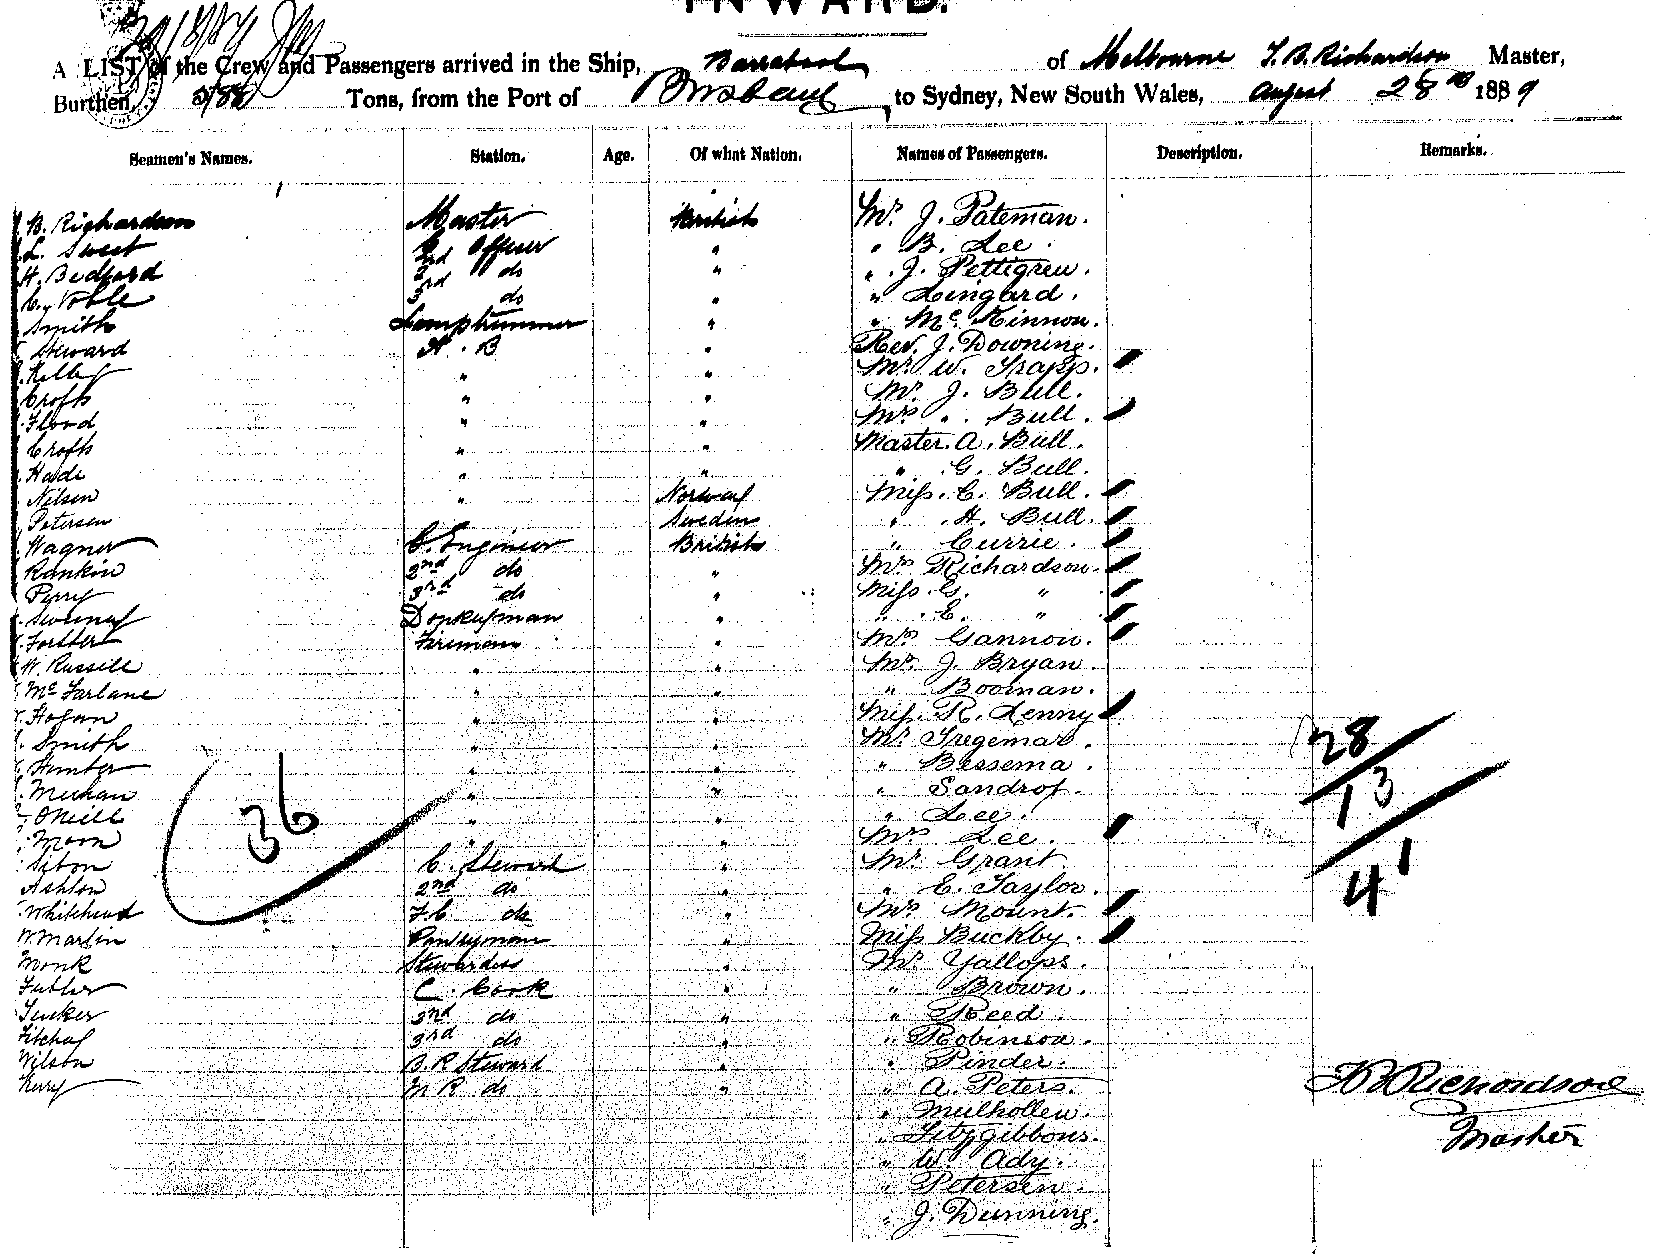 INWARD.
A LIST of the Crew and Passengers arrived in the Ship, Barrabool of Melbourne T. B. Richardson Master,
Burthen, Tons, from the Port of Brisbane to Sydney, New South Wales, August 28th 1889
Seamen's Names. Station. Age. Of what Nation. Names of Passengers. Description. Remarks.
B. Richardson Master British Mr. J. Pateman.
L. Sweet C. Officer " " B. Lee.
H. Bedford 2nd do " " J. Pettigrew.
Noble 3rd do " " Lingard.
Smith Lamptrimmer " " Mc. Kinnon.
Steward A. B " Rev. J. Downing.
Kelly " " Mr. W. Trapp.
Crofts " " Mr. J. Bull.
Flood " " Mrs. " Bull.
Crofts " " Master. A. Bull.
" " " G. Bull.
Nelsen " Norway Miss. C. Bull.
Petersen Sweden " H. Bull.
Wagner C. Engineer British " Currie.
Rankin 2nd do " Mrs Richardson.
Perry 3rd do " Miss. G. "
Sweeney Donkeyman " " E. "
Forster Fireman " Mrs. Gannon.
W. Russell " " Mr. J. Bryan.
Mc Farlane " " " Booman.
Hogan " " Miss. R. Lenny
Smith " " Mr. Tregemar.
Hunter " " " Bessema.
Meehan " " " Sandrof.
ONeill " " " Lee.
Moon " " Mrs Lee.
C. Steward " Mr. Grant
Ashton 2nd do " " E. Taylor.
Whitehead F.C do " Mrs Mount.
Martin Pantryman " Miss Buckby.
Monk Stewardess " Mr. Yallops.
C. Cook " " Brown.
Tucker 2nd do " " Reed.
3rd do " " Robinson.
Wilson B. R Steward " " Pinder.
Kerry M R do " " A. Peters.
" Mulhollen.
" Fitzgibbons.
" W. Ady.
" Petersen.
" J. Dunning.
36
28
13
41
T B Richardson
Master